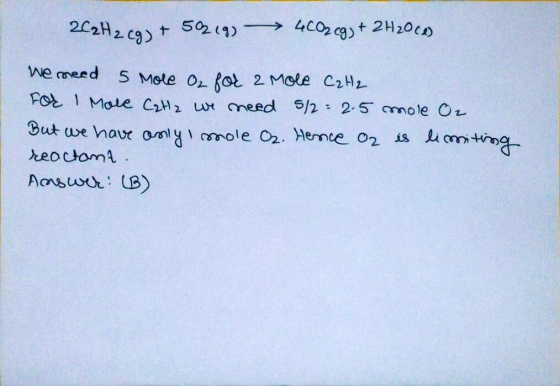 2C2H2(g) + 5O2(g) ⟶ 4CO2(g) + 2H2O(l)
We need 5 Mole O2 for 2 Mole C2H2
For 1 Mole C2H2 we need 5/2 = 2.5 mole O2
But we have only 1 mole O2. Hence O2 is limiting
reactant.
Answer: (B)